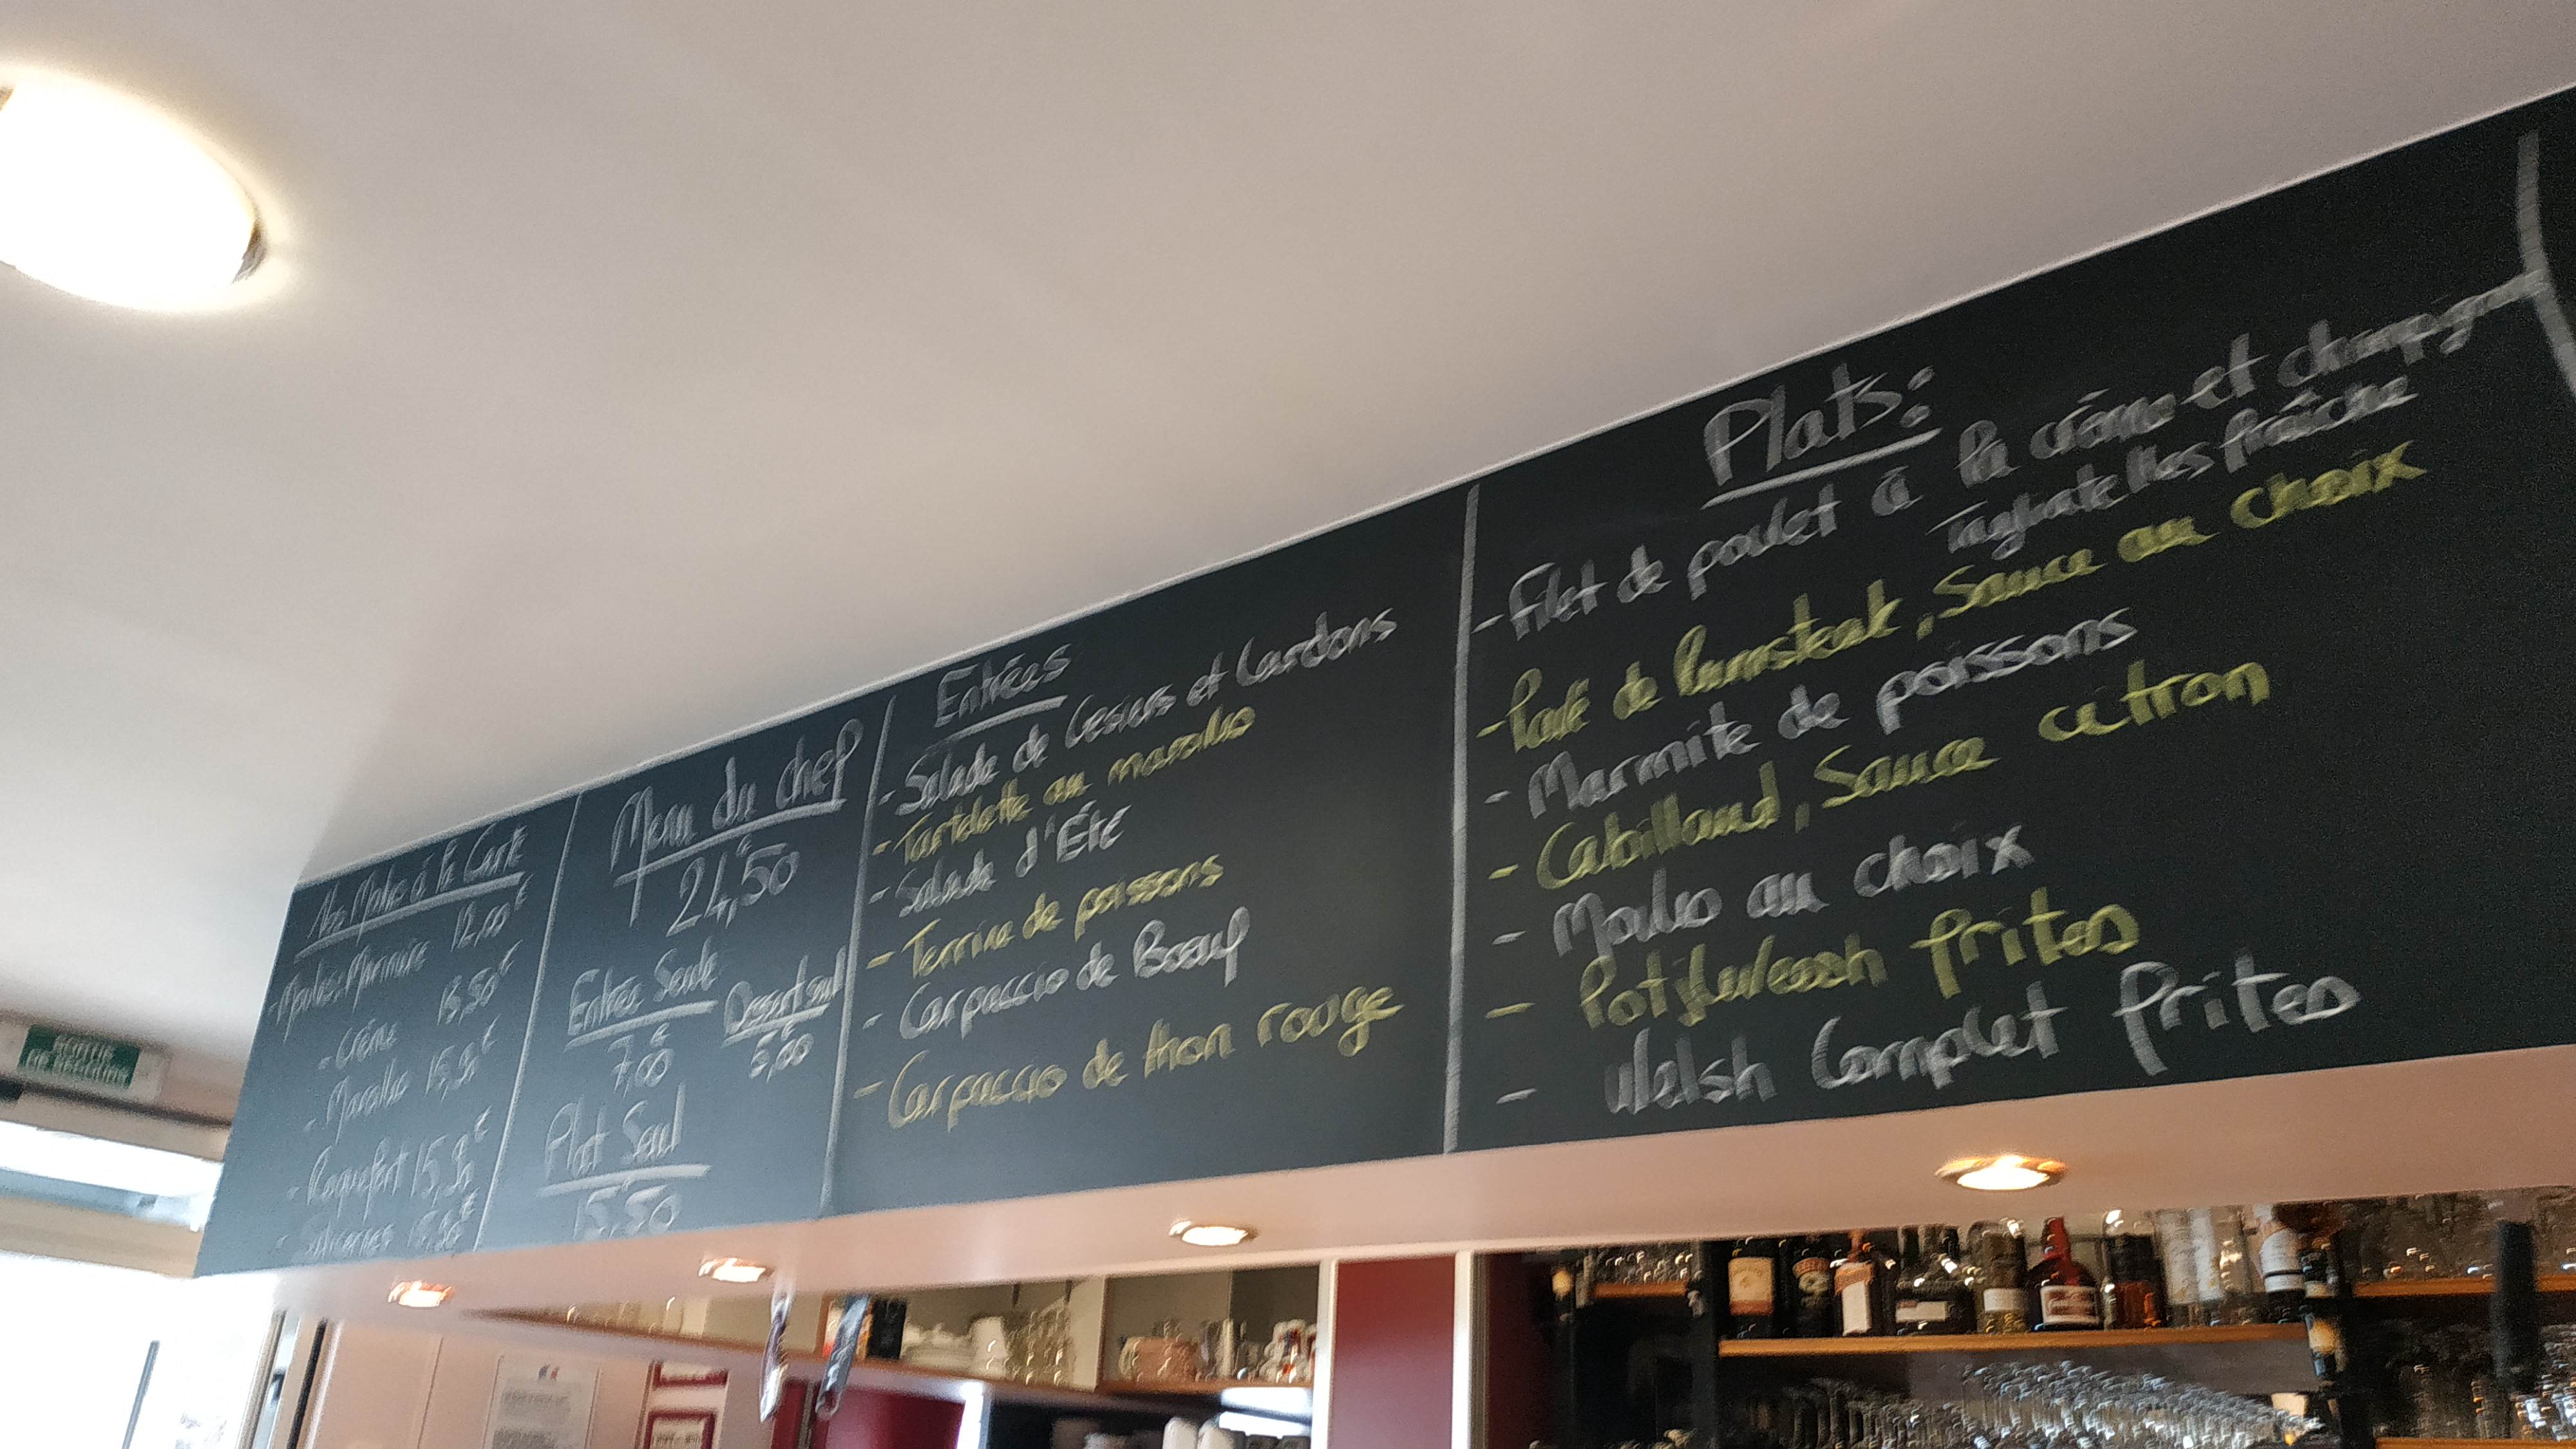 Nos Moules à la Carte
- Moules: Marinière 12,00€
- Crème 13,50€
- Maroilles 15,50€
- Roquefort 15,50€
15,50€
Menu du chef
24,50€
Entrée Seule
7,00€
Dessert seul
6,00€
Plat Seul
15,50
Entrées
- Salade de Gesiers et Lardons
- Tartelette au maroilles
- Salade d'Été
- Terrine de poissons
- Carpaccio de Bœuf
- Carpaccio de thon rouge
Plats:
- Filet de poulet à la crème et champignons
Tagliatelles fraîche
- Pavé de Rumsteak, Sauce au choix
- Marmite de poissons
- Cabillaud, Sauce citron
- Moules au choix
- Potjevleesch frites
- Welsh Complet frites
SORTIE
DE SECOURS